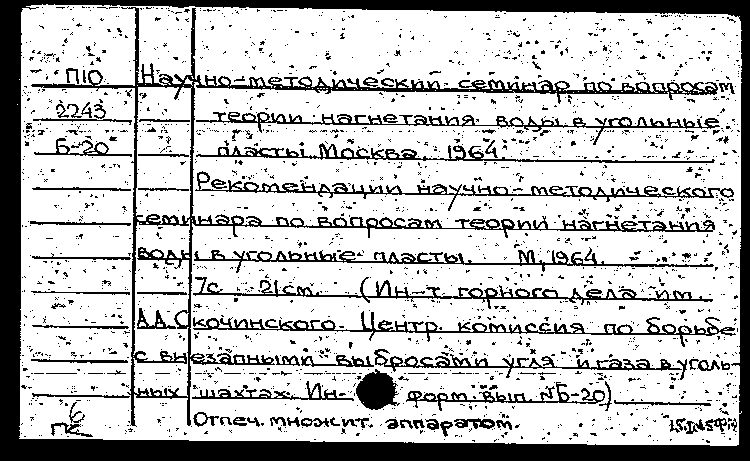 П10 Научно-методический семинар по вопросам
2243 теории нагнетания воды в угольные
Б-20 пласты. Москва. 1964.
Рекомендации научно-методического
семинара по вопросам теории нагнетания
воды в угольные пласты. М., 1964.
7с. 21см. (Ин-т горного дела им.
А.А.Скочинского. Центр. комиссия по борьбе
с внезапными выбросами угля и газа в уголь-
ных шахтах. Ин- форм. вып. №Б-20)
Отпеч. множит. аппаратом.